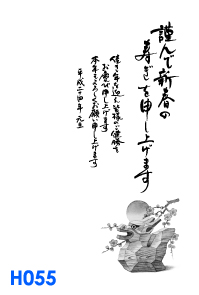 謹んで新春の
寿ぎを申し上げます
佳き年を迎え皆様のご健勝を
お慶び申し上げます
本年もよろしくお願い申し上げます
平成二十四年 元旦
H055